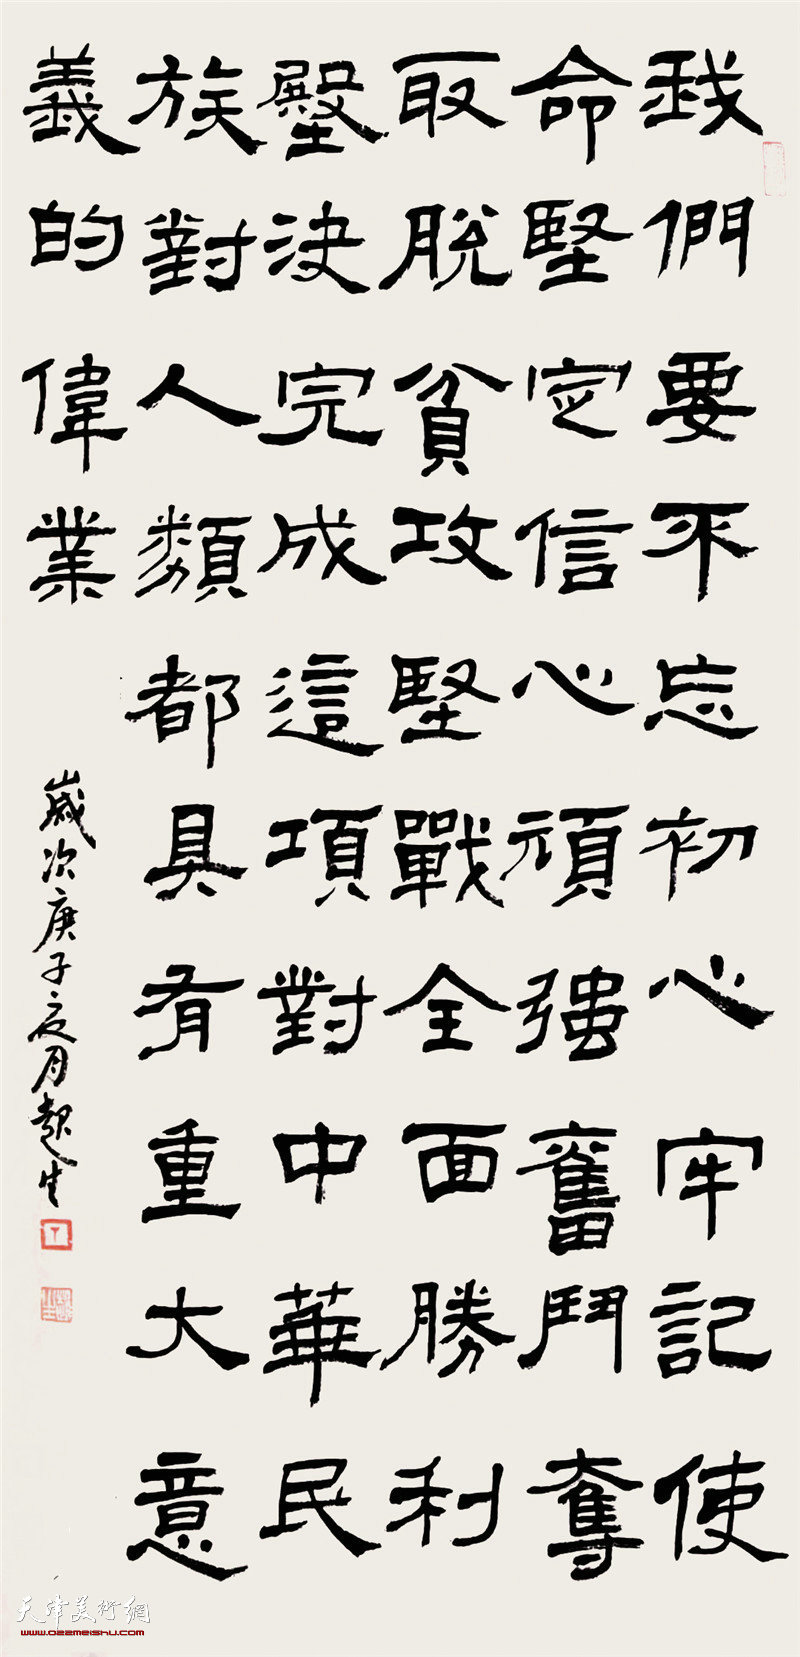 我們要不忘初心牢記使
命堅定信心頑強奮鬥奪
取脫貧攻堅戰全面勝利
堅決完成這項對中華民
族對人類都具有重大意
義的偉業
歲次庚子夏月趙生
天津美術網
www.022meishu.com